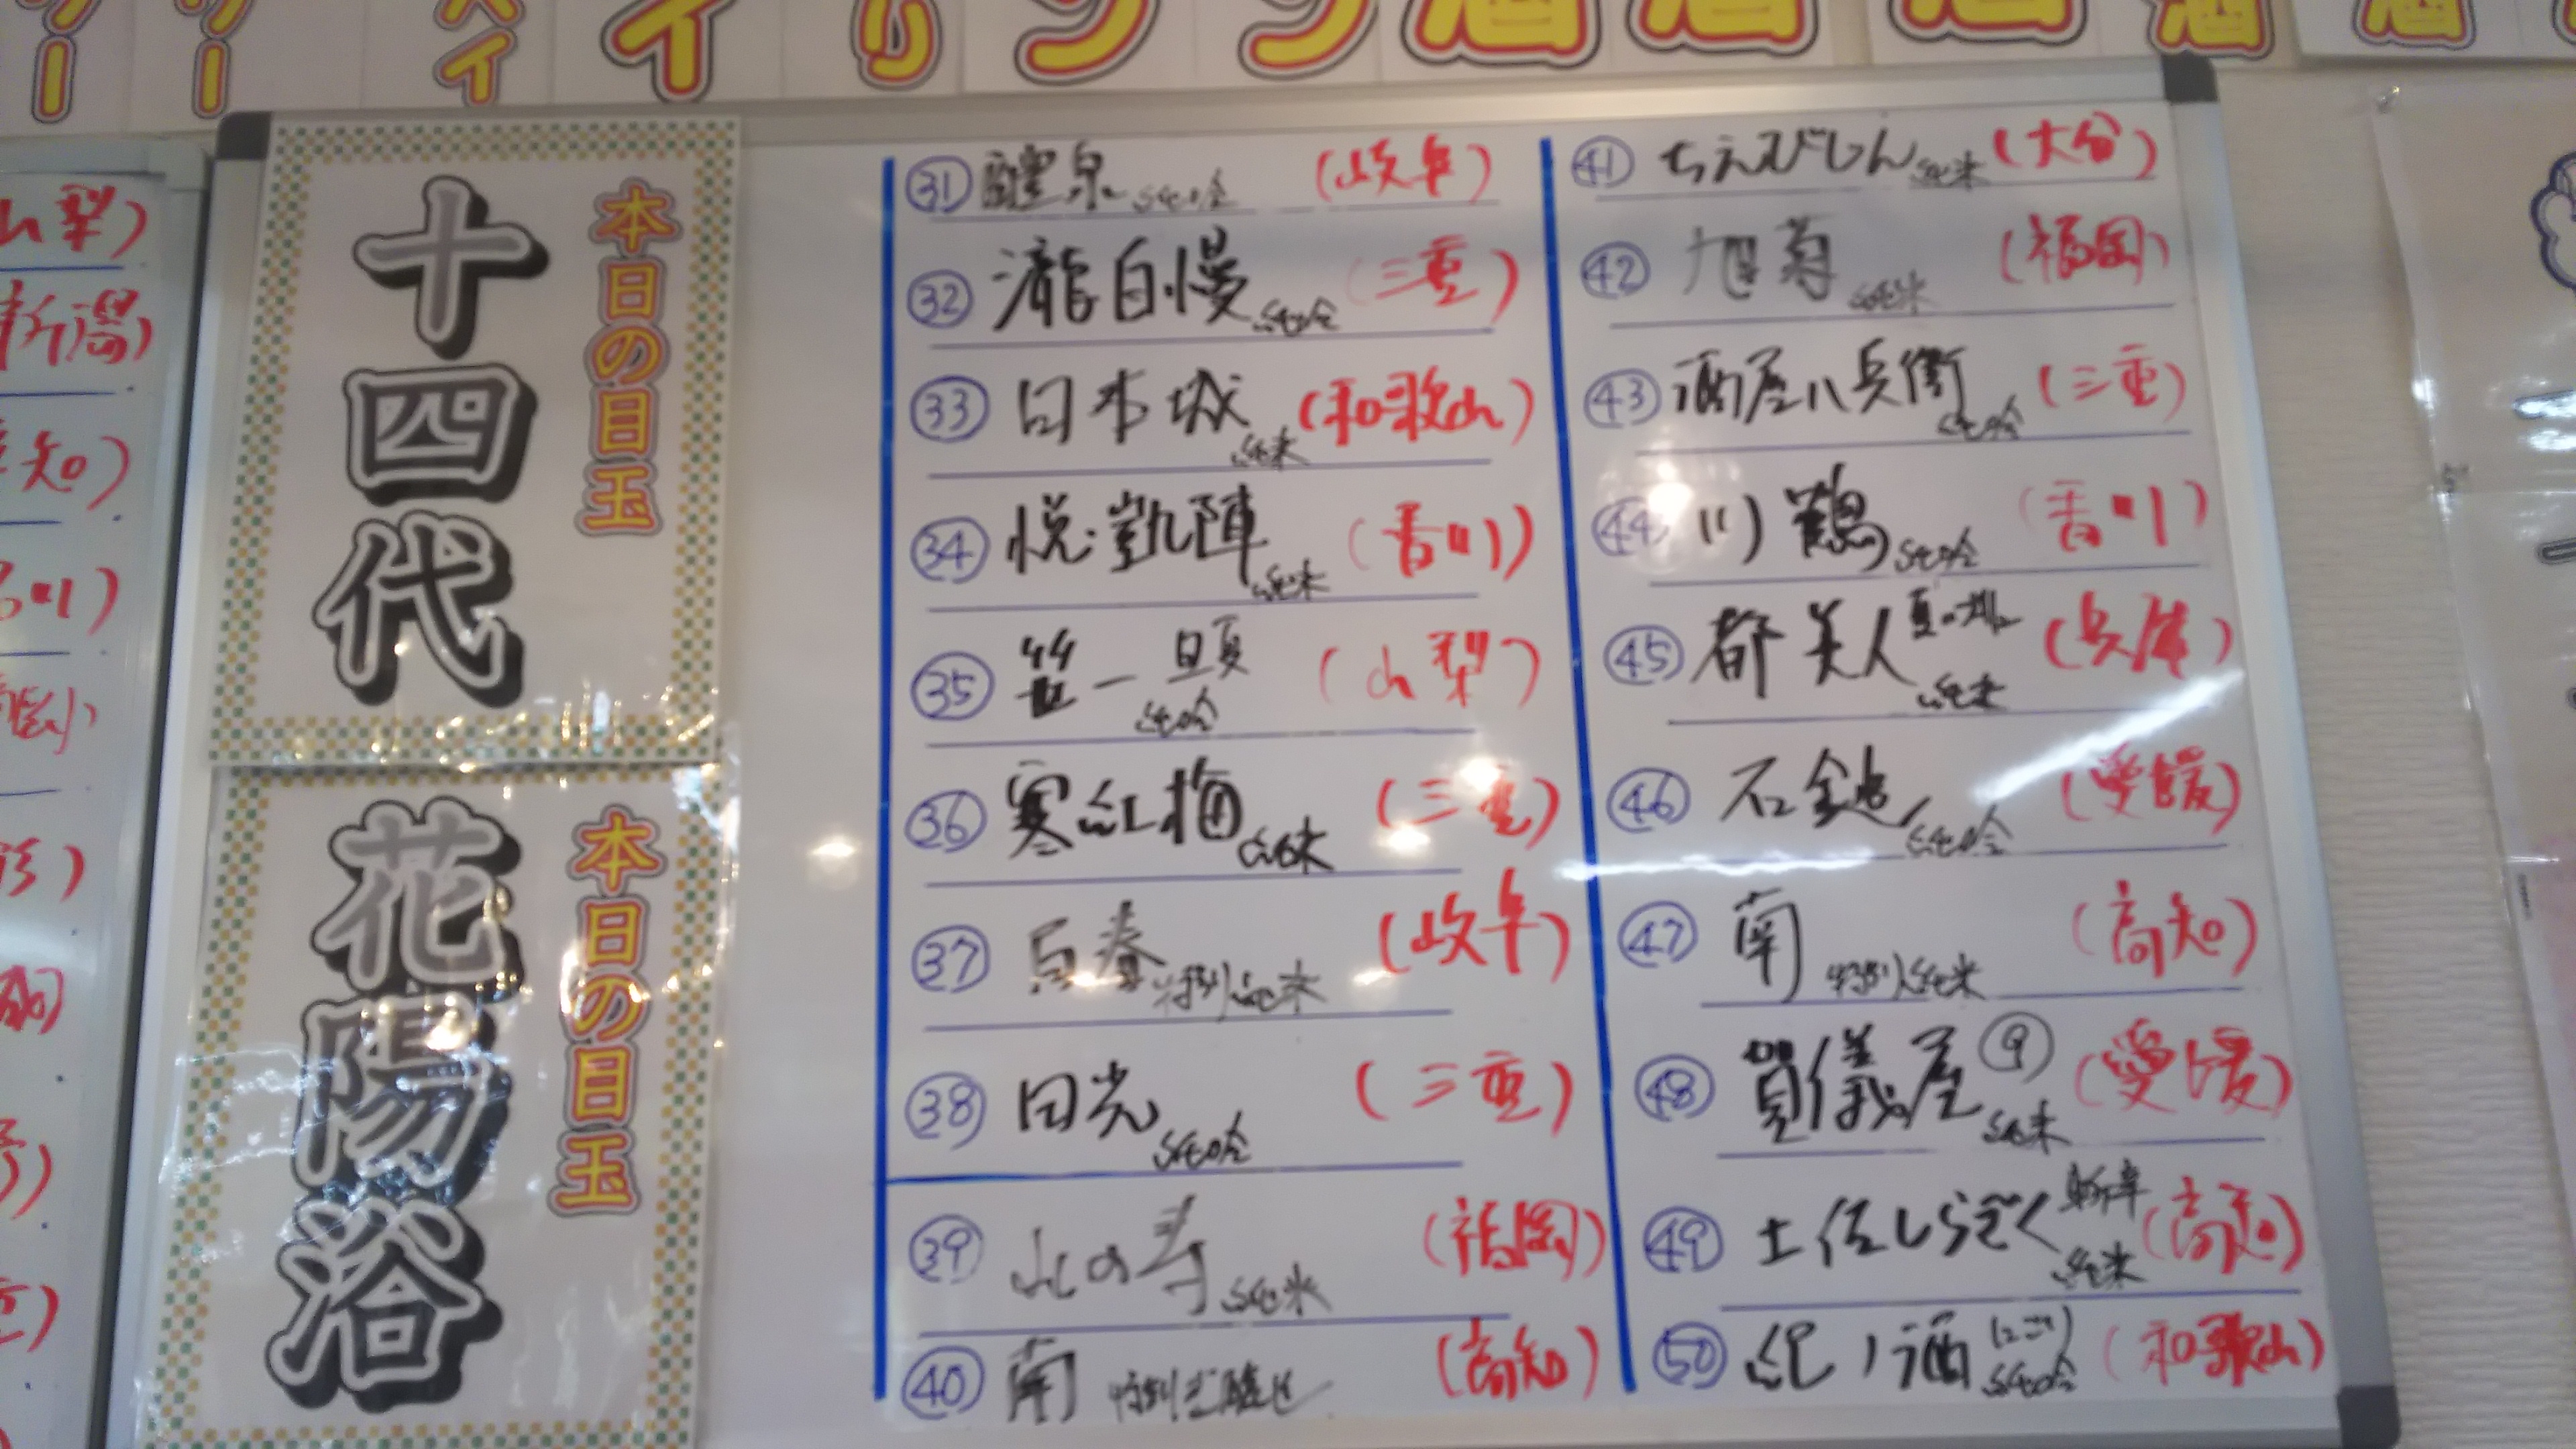 本日の目玉
十四代
本日の目玉
花陽浴
㉛ 醴泉 純吟 (岐阜)
㉜ 瀧自慢 純吟 (三重)
㉝ 日本城 純米 (和歌山)
㉞ 悦凱陣 純米 (香川)
㉟ 笹一 夏 純吟 (山梨)
㊱ 寒紅梅 純米 (三重)
㊲ 百春 特別純米 (岐阜)
㊳ 田光 純吟 (三重)
㊴ 山の寿 純米 (福岡)
㊵ 南 特別 (高知)
㊶ ちえびじん 純米 (大分)
㊷ 旭菊 純米 (福岡)
㊸ 酒屋八兵衛 純吟 (三重)
㊹ 川鶴 純吟 (香川)
㊺ 都美人 夏の 純米 (兵庫)
㊻ 石鎚 純吟 (愛媛)
㊼ 南 特別純米 (高知)
㊽ 賀儀屋 純米 (愛媛)
㊾ 土佐しらぎく 純米 (高知)
㊿ 紀ノ酒 にごり 純吟 (和歌山)
山梨)
新潟)